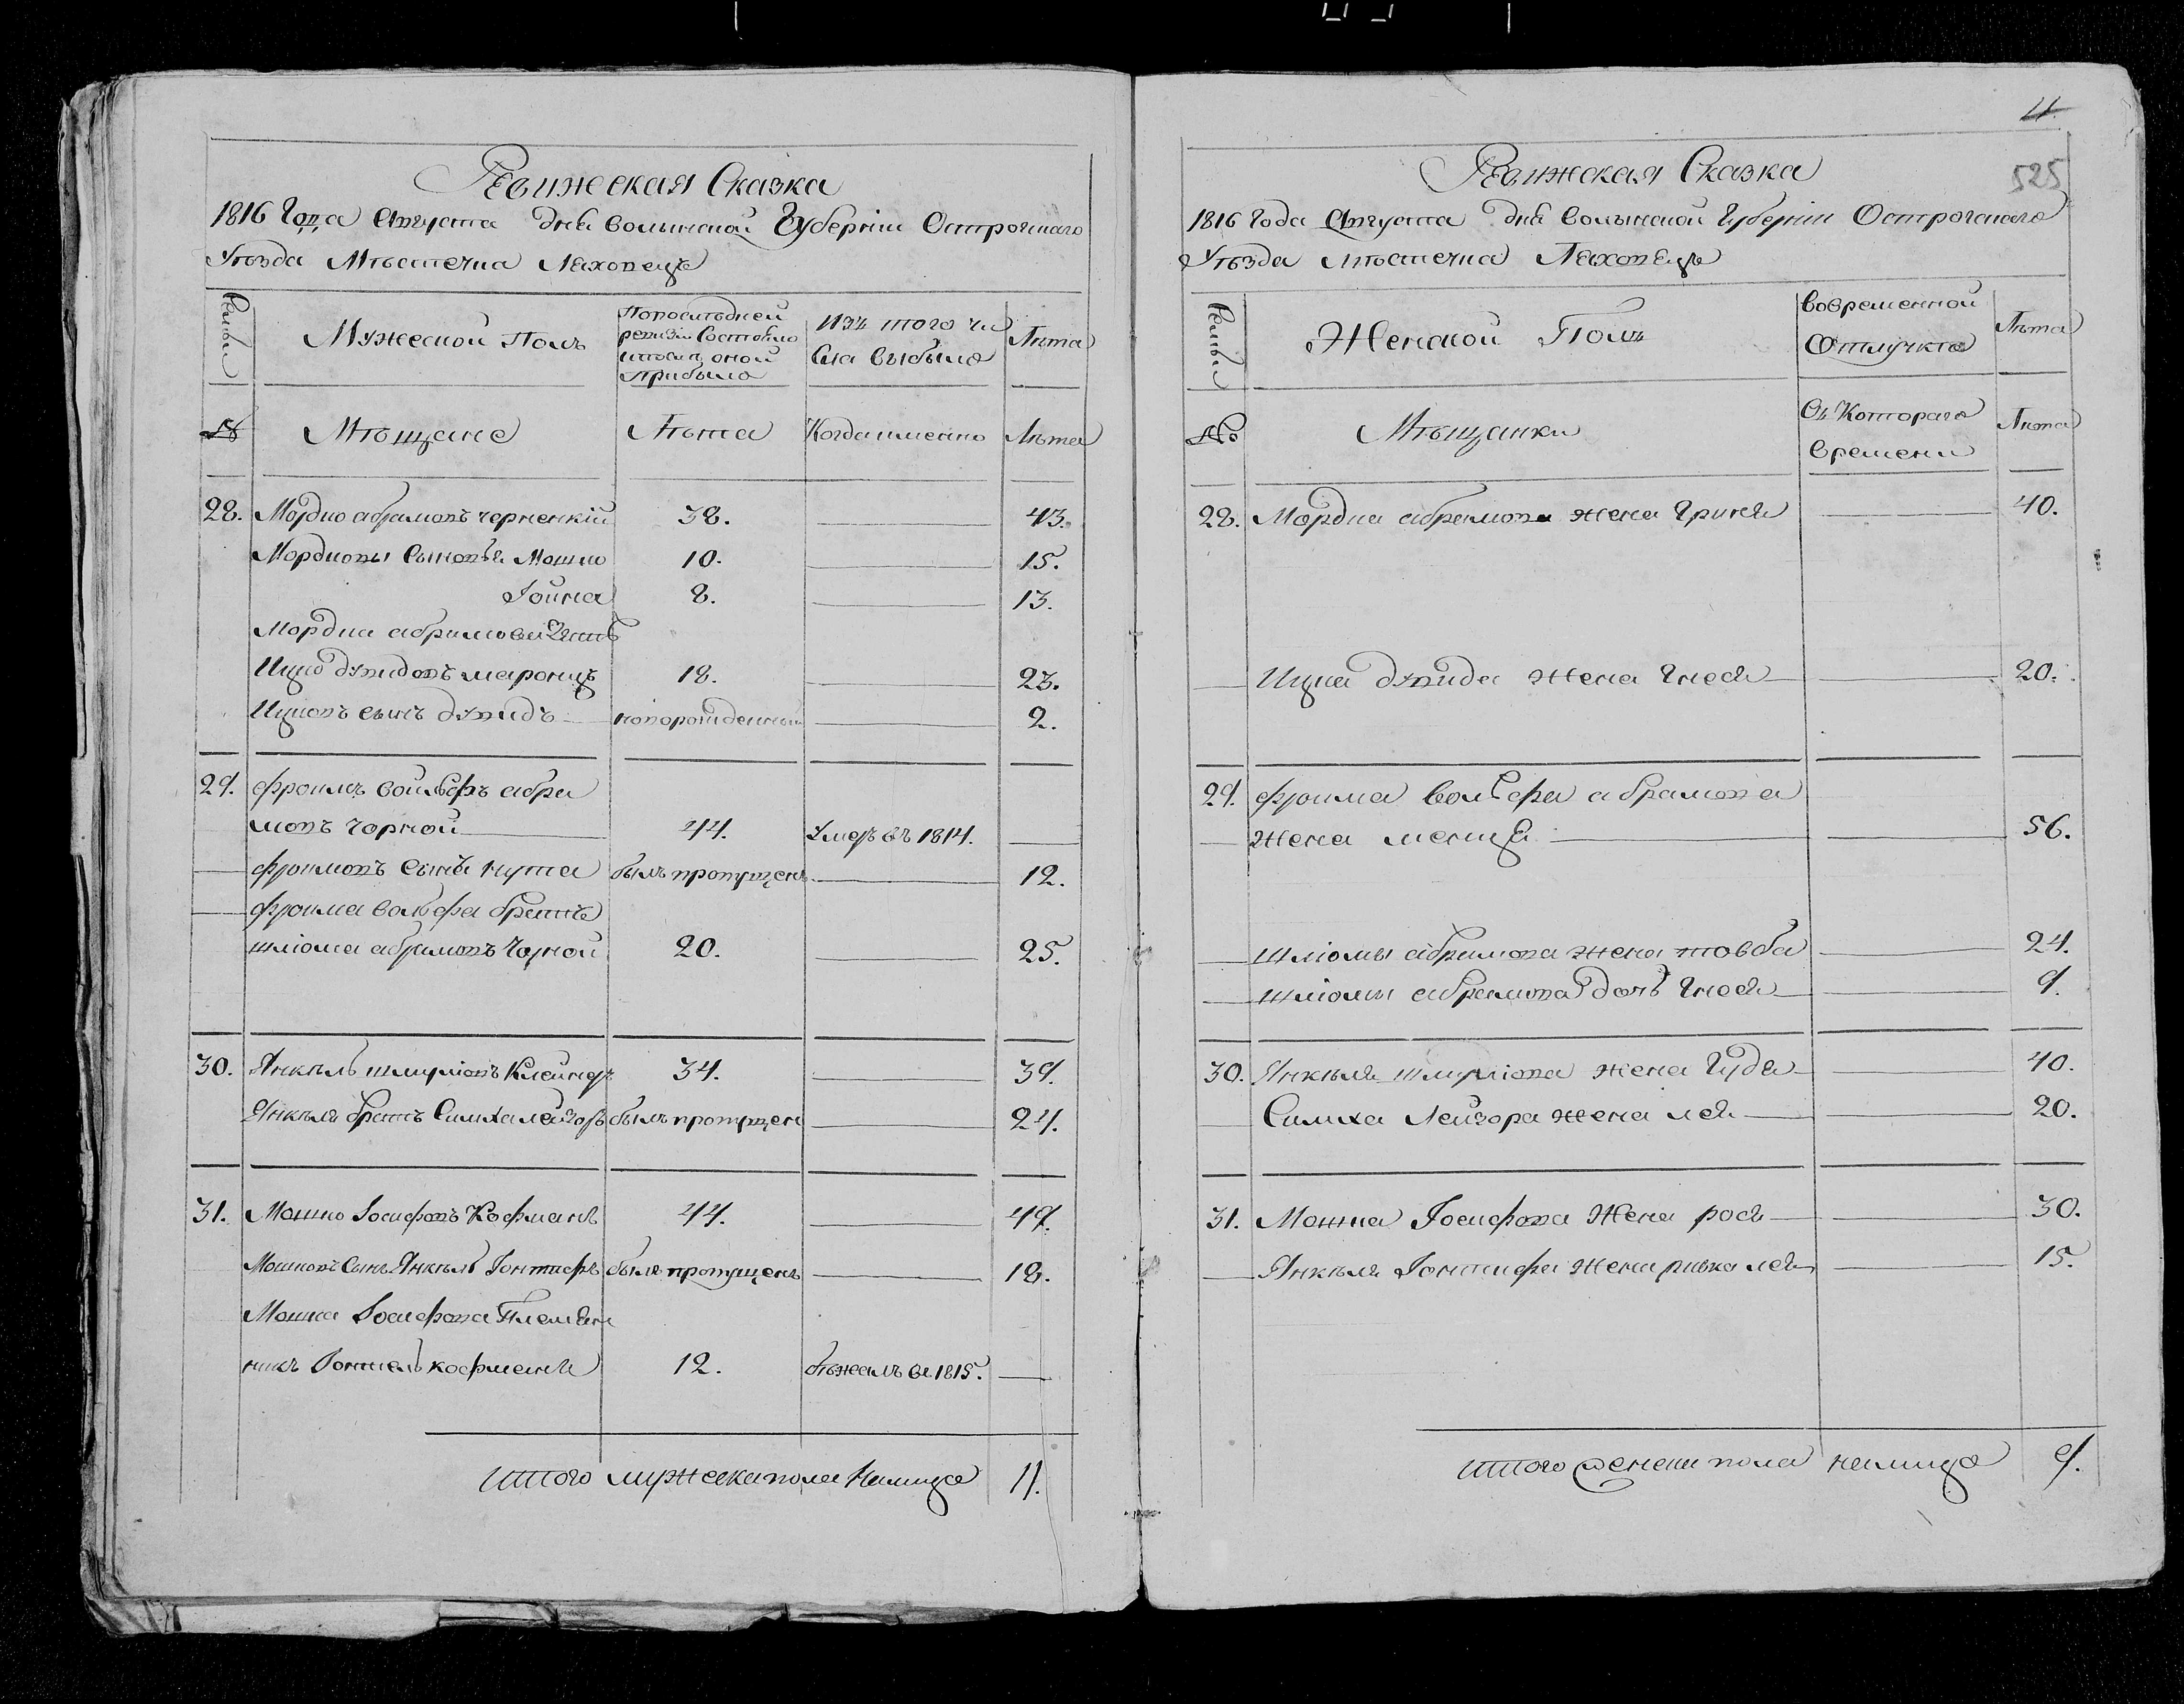 Ревижская Сказка
1816 Года Августа дня Волынской Губерніи Острогскаго
Уѣзда Мѣстечка Ляховецъ
Семьи
Мужеской Полъ
Попослѣдней
ревизіи Состояло
ипослѣ оной
Прибыло
Изъ того чи
сла выбыло
Лѣта
№
Мѣщане
Лѣта
Когда имянно
Лѣта
28. Мордко абрамовъ черненкій 38. 43.
Мордковы Сыновья Мошко 10. 15.
Іойна 8. 13.
Мордка абрамова Зять
Ицко дувидовъ 18. 23.
Ицковъ сынъ дувидъ новорожденный 2.
29. фроимъ вольфъ абра
мовъ чорной 44. Умеръ въ 1814.
фроимовъ сынъ нута былъ пропущенъ 12.
фроима вольфа братъ
шліома абрамовъ чорной 20. 25.
30. Янкель шмуліовъ 34. 39.
Янкеля братъ Симха лейзоръ былъ пропущен 24.
31. Мошко Іосифовъ Кофманъ 44. 49.
Мошковъ Сынъ Янкель былъ пропущенъ 18.
Мошка Іосифова Племян
никъ кофманъ 12. бѣжалъ въ 1815.
Итого мужеска пола Налицо 11.
11
525
Ревижская Сказка
1816 Года Августа дня Волынской Губерніи Острогскаго
Уѣзда мѣстечка Ляховецъ
Семьи
Женской Полъ
Вовременной
Отлучкѣ
Лѣта
№
Мѣщанки
Съ Котораго
времени
Лѣта
28. Мордка абрамова жена 40.
Ицка дувида жена Гнеся 20.
29. фроима вольфа абрамова
жена 56.
шліомы абрамова жена товба 24.
шліомы абрамова дочь Гнеся 9.
30. Янкеля шмуліова жена 40.
Симха Лейзора жена лея 20.
31. Мошка Іосифова Жена рося 30.
Янкеля жена ривка лея 15.
Итого женска пола налицо 9.